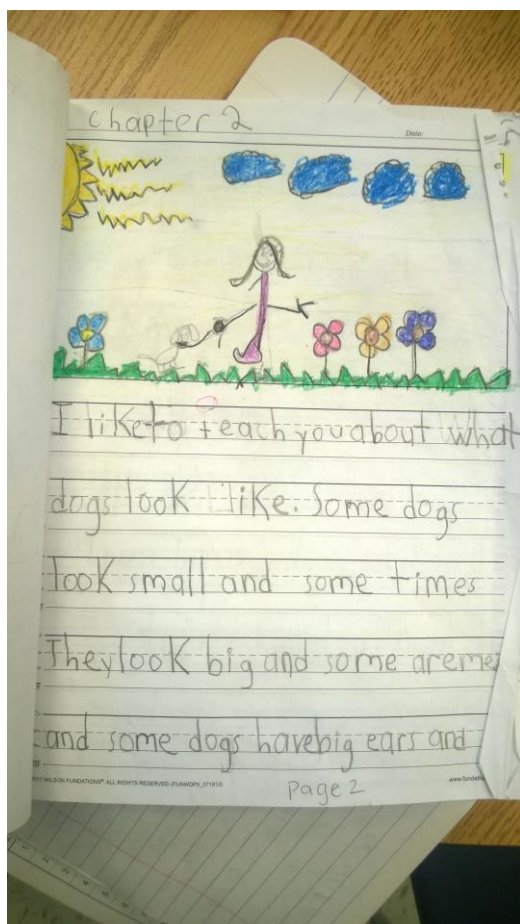 chapter 2
Date:
I like to teach you about what
dogs look like. Some dogs
look small and some times
They look big and some are
and some dogs have big ears and
WILSON FUNDATIONS® ALL RIGHTS RESERVED. (FUNWDP5_071813)
page 2